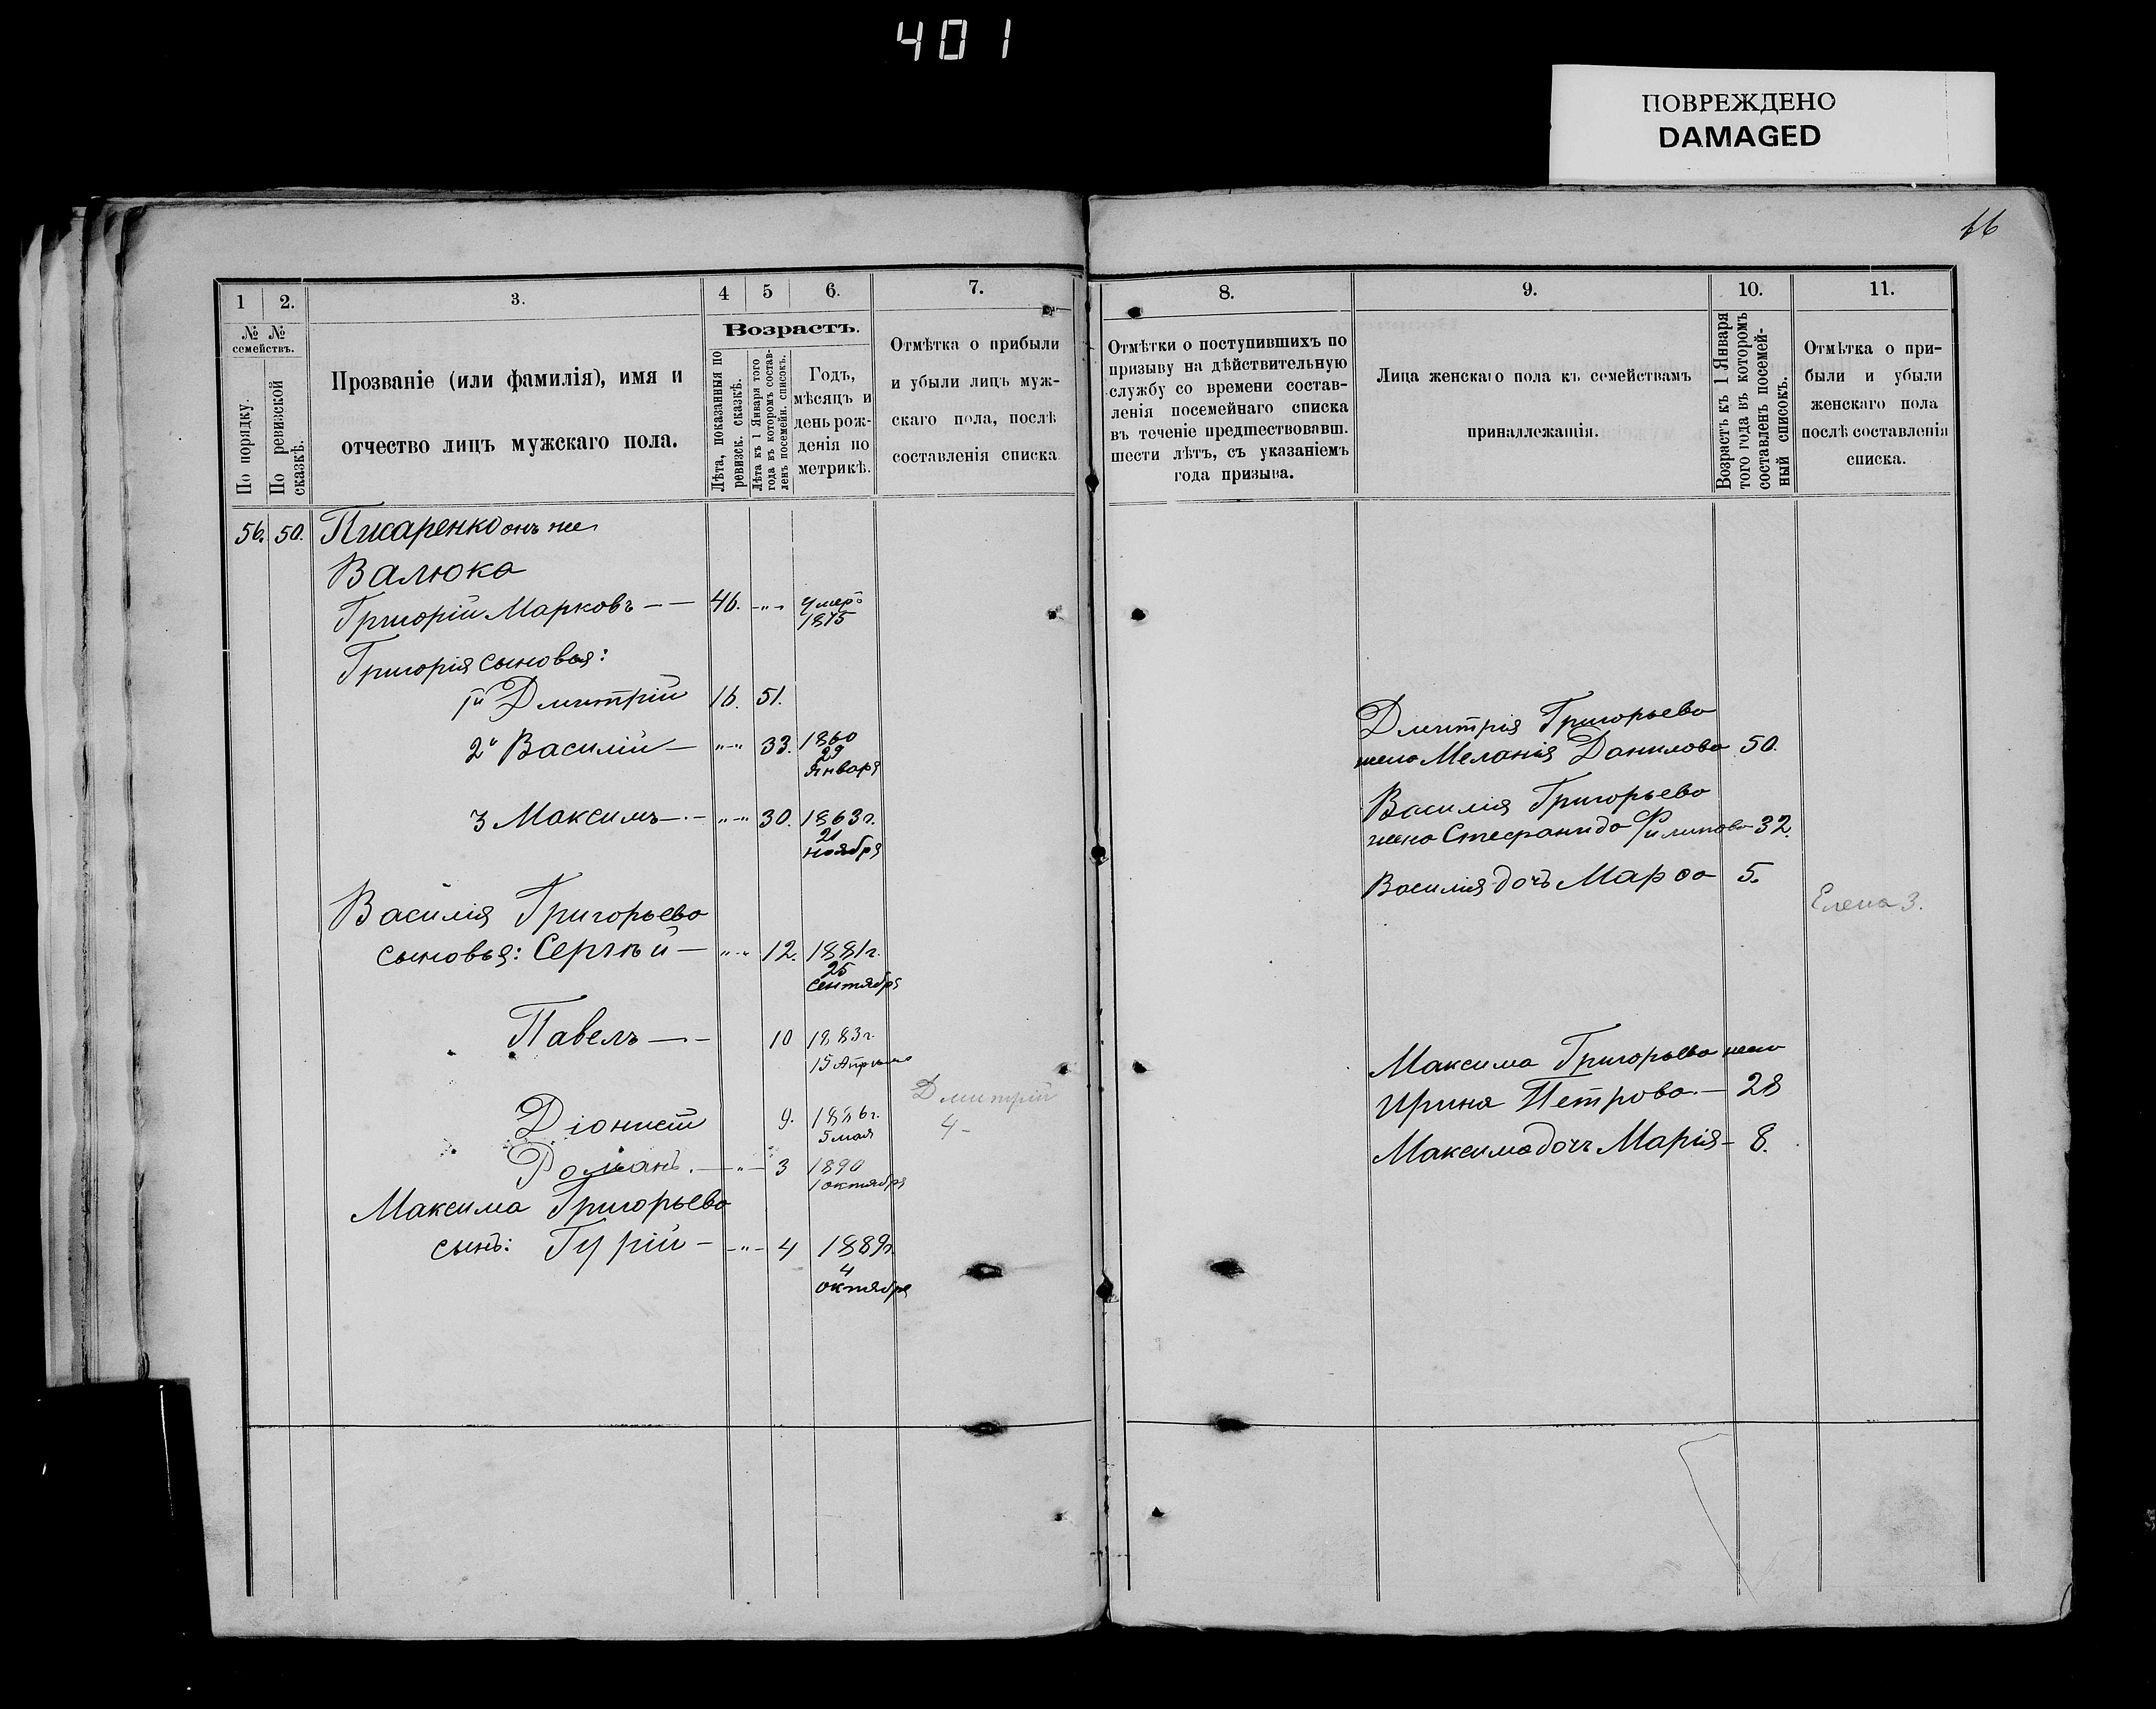 401
ПОВРЕЖДЕНО
DAMAGED
66
1
2.
3.
4
5
6.
7.
№ №
семействъ.
По порядку.
По ревизской
сказкѣ.
Прозваніе (или фамилія), имя и
отчество лицъ мужскаго пола.
Возрастъ.
Лѣта, показанныя по
ревизск. сказкѣ.
Лѣта къ 1 Января того
года въ которомъ состав-
ленъ посемейн. списокъ.
Годъ,
мѣсяцъ и
день рож-
денія по
метрикѣ.
Отмѣтка о прибыли
и убыли лицъ муж-
скаго пола, послѣ
составленія списка
56. 50. Писаренко онъ же
Валюка
Григорій Марковъ — — 46. -"- умеръ
1875
Григорія сыновья:
1й Дмитрій 16. 51.
2й Василій — "-" 33. 1860
29
Января
3 Максимъ — "-" 30. 1863г.
21
ноября
Василія Григорьева
сыновья: Сергѣй — "-" 12. 1881г.
25
Сентября
Павелъ — 10 1883г.
15 Апрѣля
Дмитрій
Діонисій 9. 1886г. 4-
5 мая
Романъ. — " — 3 1890
1 октября
Максима Григорьева
сынъ: Гурій — - " - 4 1889г
4
октября
8.
9.
10.
11.
Отмѣтки о поступившихъ по
призыву на дѣйствительную
службу со времени состав-
ленія посемейнаго списка
въ теченіе предшествовавш.
шести лѣтъ, съ указаніемъ
года призыва.
Лица женскаго пола къ семействамъ
принадлежащія.
Возрастъ къ 1 Января
того года въ которомъ
составленъ посемей-
ный списокъ.
Отмѣтка о при-
были и убыли
женскаго пола
послѣ составленія
списка.
Дмитрія Григорьева
жена Меланія Данилова 50.
Василія Григорьева
жена Стефанида Филипова 32.
Василія дочь Марѳа 5.
Елена 3.
Максима Григорьева жена
Ирина Петрова — 28
Максима дочь Марія — 8.